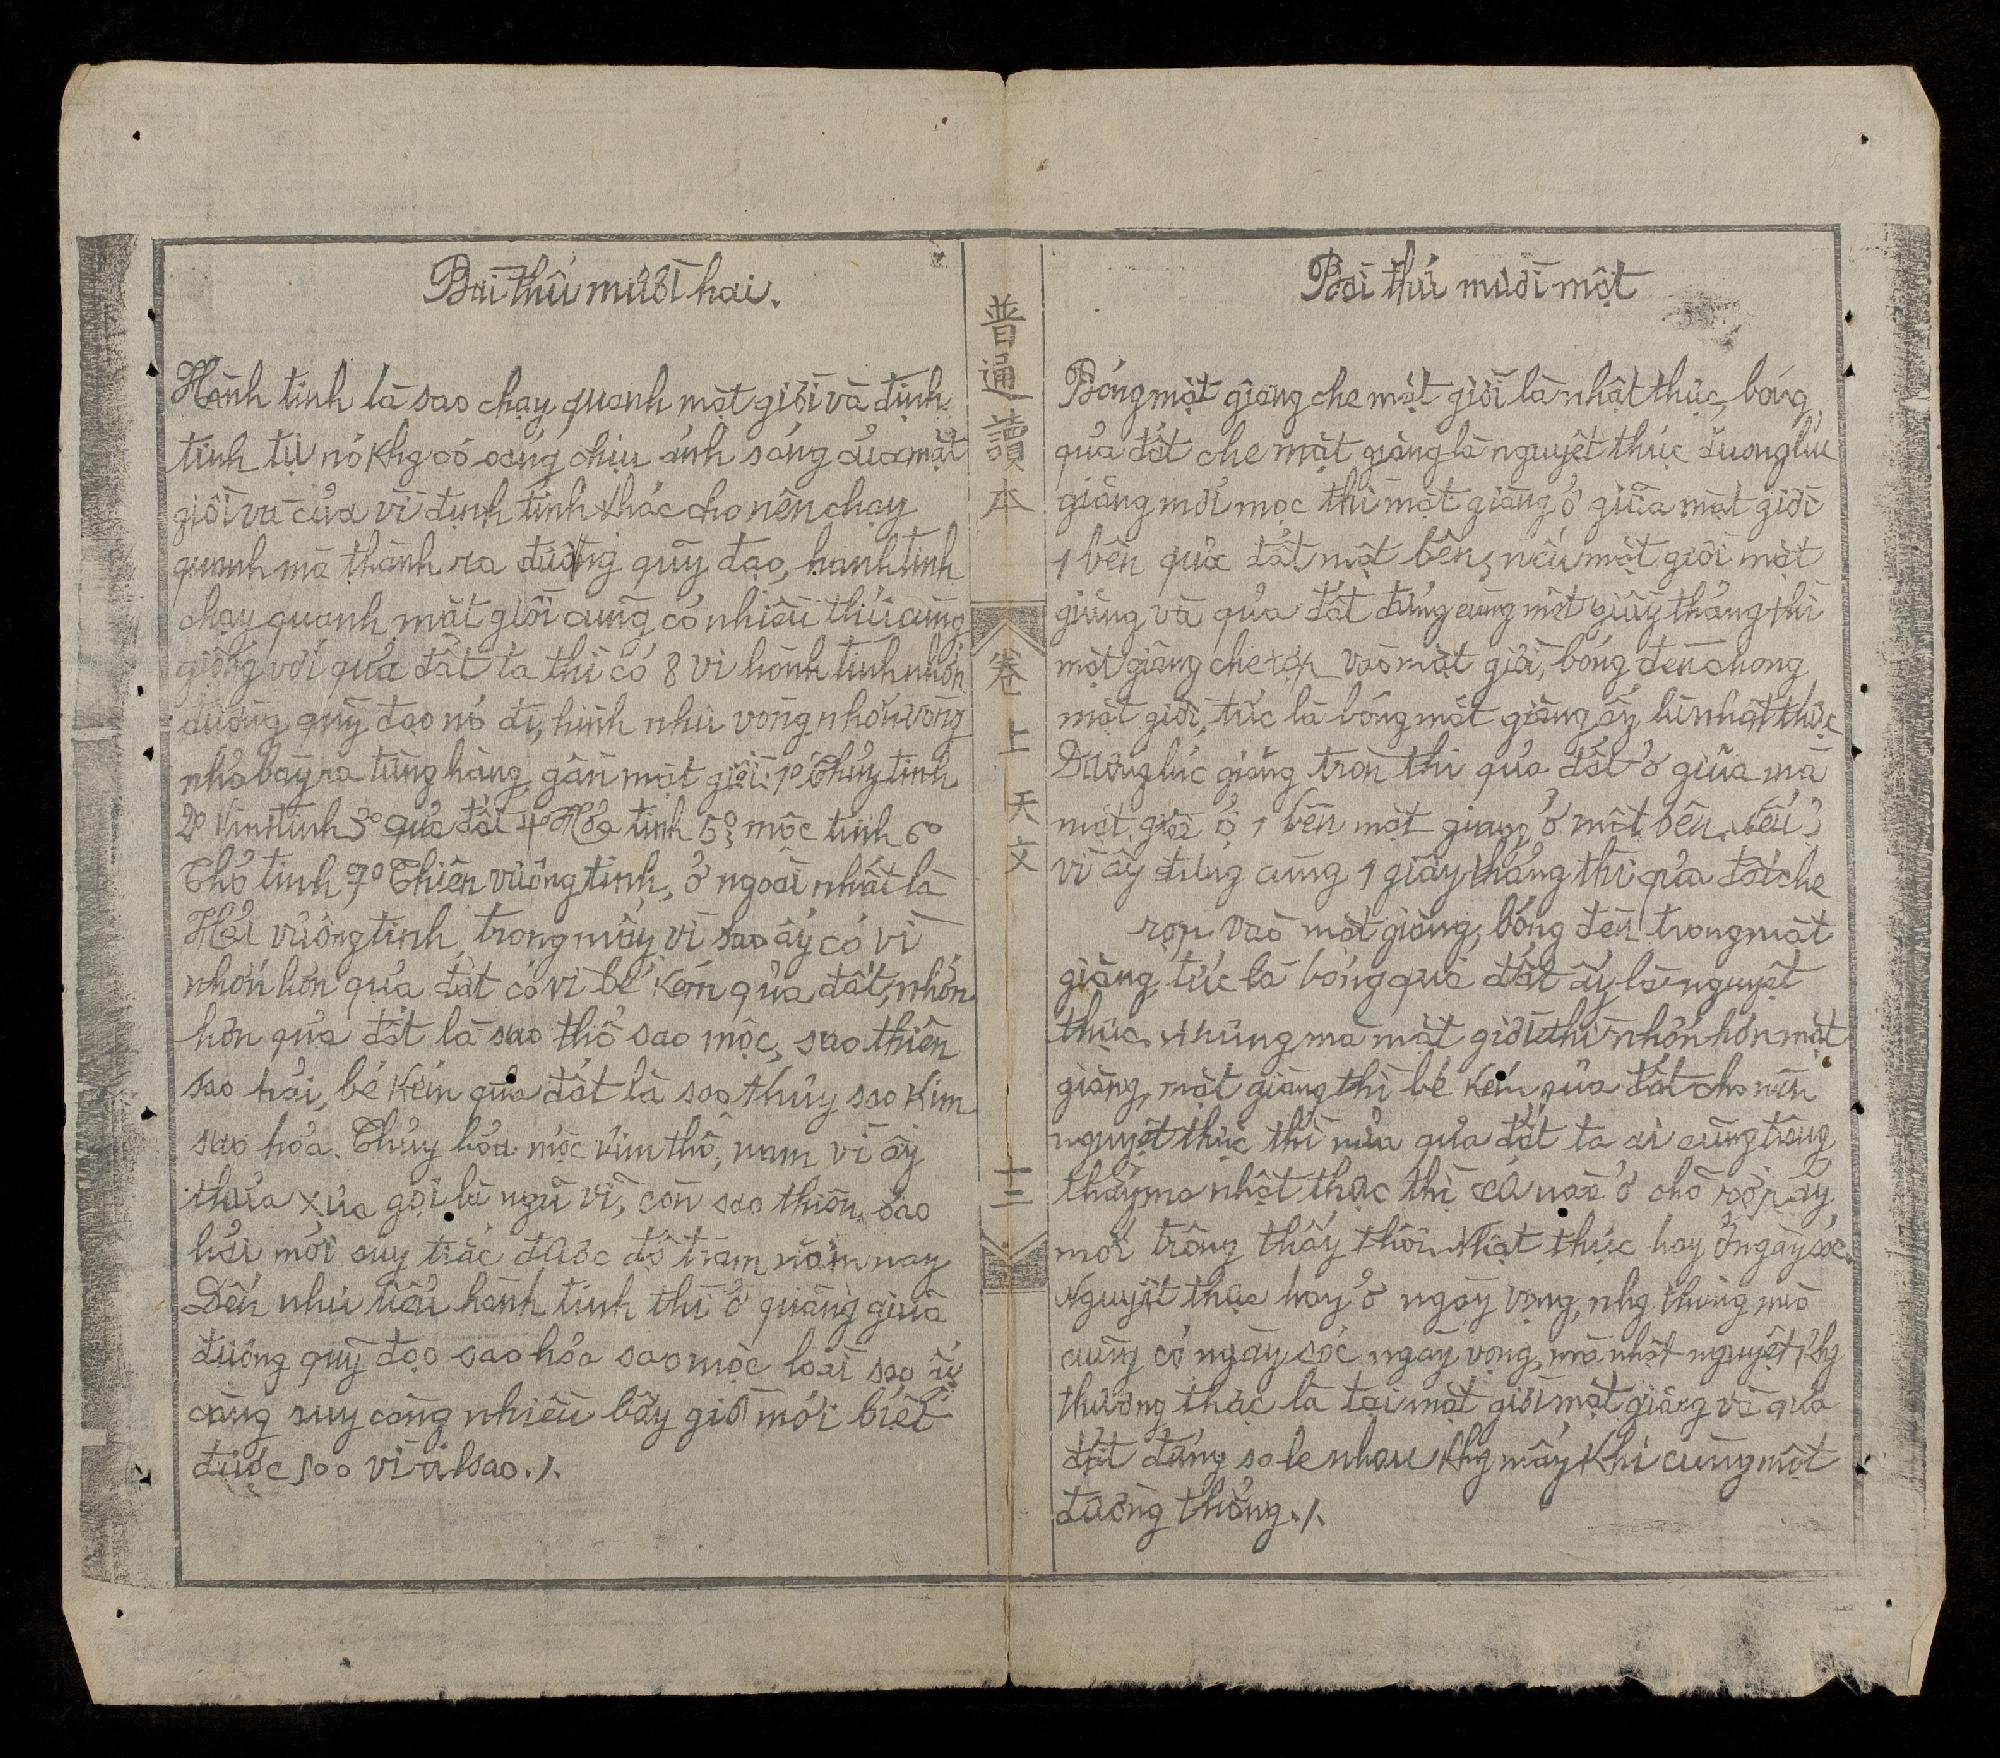 Bài thứ mười một
Bóng mặt giăng che mặt giời là nhật thực, bóng
qủa đất che mặt giăng là nguyệt thực đương lúc
giăng mới mọc thì mặt giăng ở giữa mặt giời
1 bên qủa đất một bên, nếu mặt giời mặt
giăng và qủa đất đứng cùng một giây thẳng thì
mặt giăng che rợp vào mặt giời, bóng đen chong
mặt giời, tức là bóng mặt giăng ấy là nhật thực
Đương lúc giăng tròn thì qủa đất ở giữa mà
mặt giời ở 1 bên mặt giăng ở một bên, nếu 3
vì ấy đứng cùng 1 giây thẳng thì qủa đất che
rợp vào mặt giăng, bóng đen trong mặt
giăng, tức là bóng qủa đất ấy là nguyệt
thực. Nhưng mà mặt giời thì nhớn hơn mặt
giăng, mặt giăng thì bé kém qủa đất cho nên
nguyệt thực thì nửa qủa đất ta ai cũng trông
thấy, mà nhật thực thì ở chỗ rợp ấy
mới trông thấy thôi. Nhật thực hay ở ngày sóc.
Nguyệt thực hay ở ngày vọng, nhg thường mà
cũng có ngày sóc ngày vọng, mà nhật nguyệt khg
thường thực là tại mặt giời mặt giăng và qủa
đất đứng so le nhau khg mấy khi cùng một
đường thẳng./.
普通讀本
卷上 天文
十二
Bài thứ mười hai.
Hành tinh là sao chạy quanh mặt giời và định
tinh tự nó khg có sáng chịu ánh sáng của mặt
giời và của vì định tinh khác cho nên chạy
quanh mà thành ra đường qũy đạo, hành tinh
chạy quanh mặt giời cũng có nhiều thứ cùng
giống với qủa đất ta thì có 8 vì hành tinh nhớn
đường qũy đạo nó đi, hình như vòng nhớn vòng
nhỏ bày ra từng hàng, gần mặt giời: 1º Thủy tinh
2º Kim tinh 3º qủa đất 4º Hỏa tinh 5º mộc tinh 6º
Thổ tinh, 7º Thiên vương tinh, ở ngoài nhất là
Hải vương tinh, trong mấy vì sao ấy có vì
nhớn hơn qủa đất có vì bé kém qủa đất, nhớn
hơn qủa đất là sao thổ sao mộc, sao thiên
sao hải, bé kém qủa đất là sao thủy sao kim
sao hỏa. Thủy hỏa mộc kim thổ, năm vì ấy
thủa xưa gọi là ngũ vĩ, còn sao thiên, sao
hải mới suy trắc được độ trăm năm nay
Đến như tiểu hành tinh thì ở quãng giữa
đường qũy đạo sao hỏa sao mộc loài sao ấy
càng suy càng nhiều bây giờ mới biết
được 500 vì sao./.